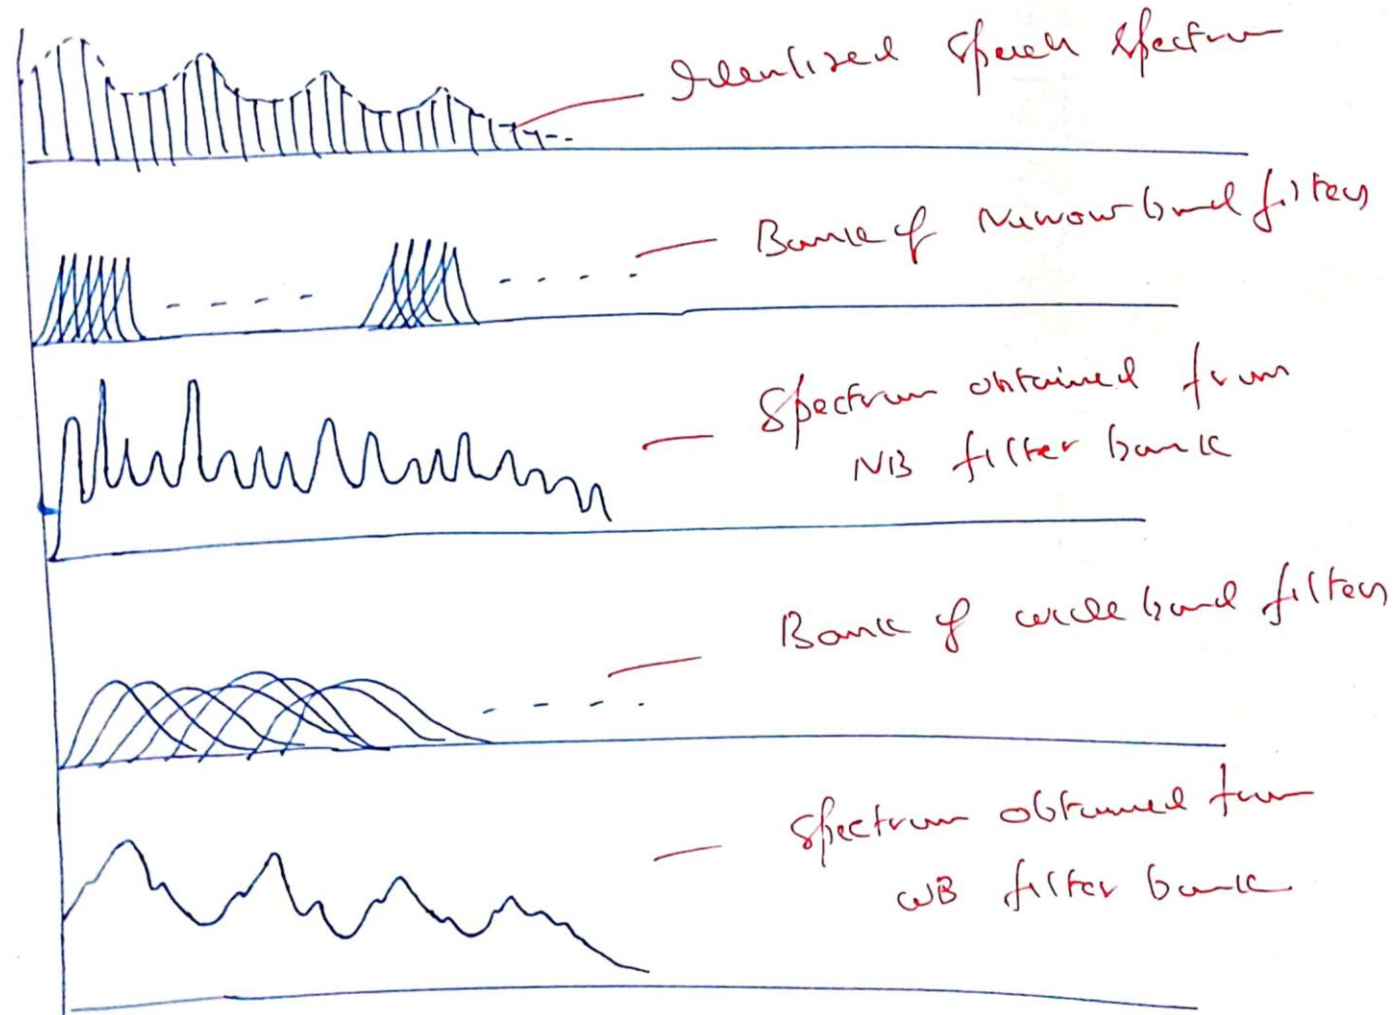 Idealized speech spectrum
Bank of Narrow band filters
Spectrum obtained from
NB filter bank
Bank of wide band filters
Spectrum obtained from
WB filter bank